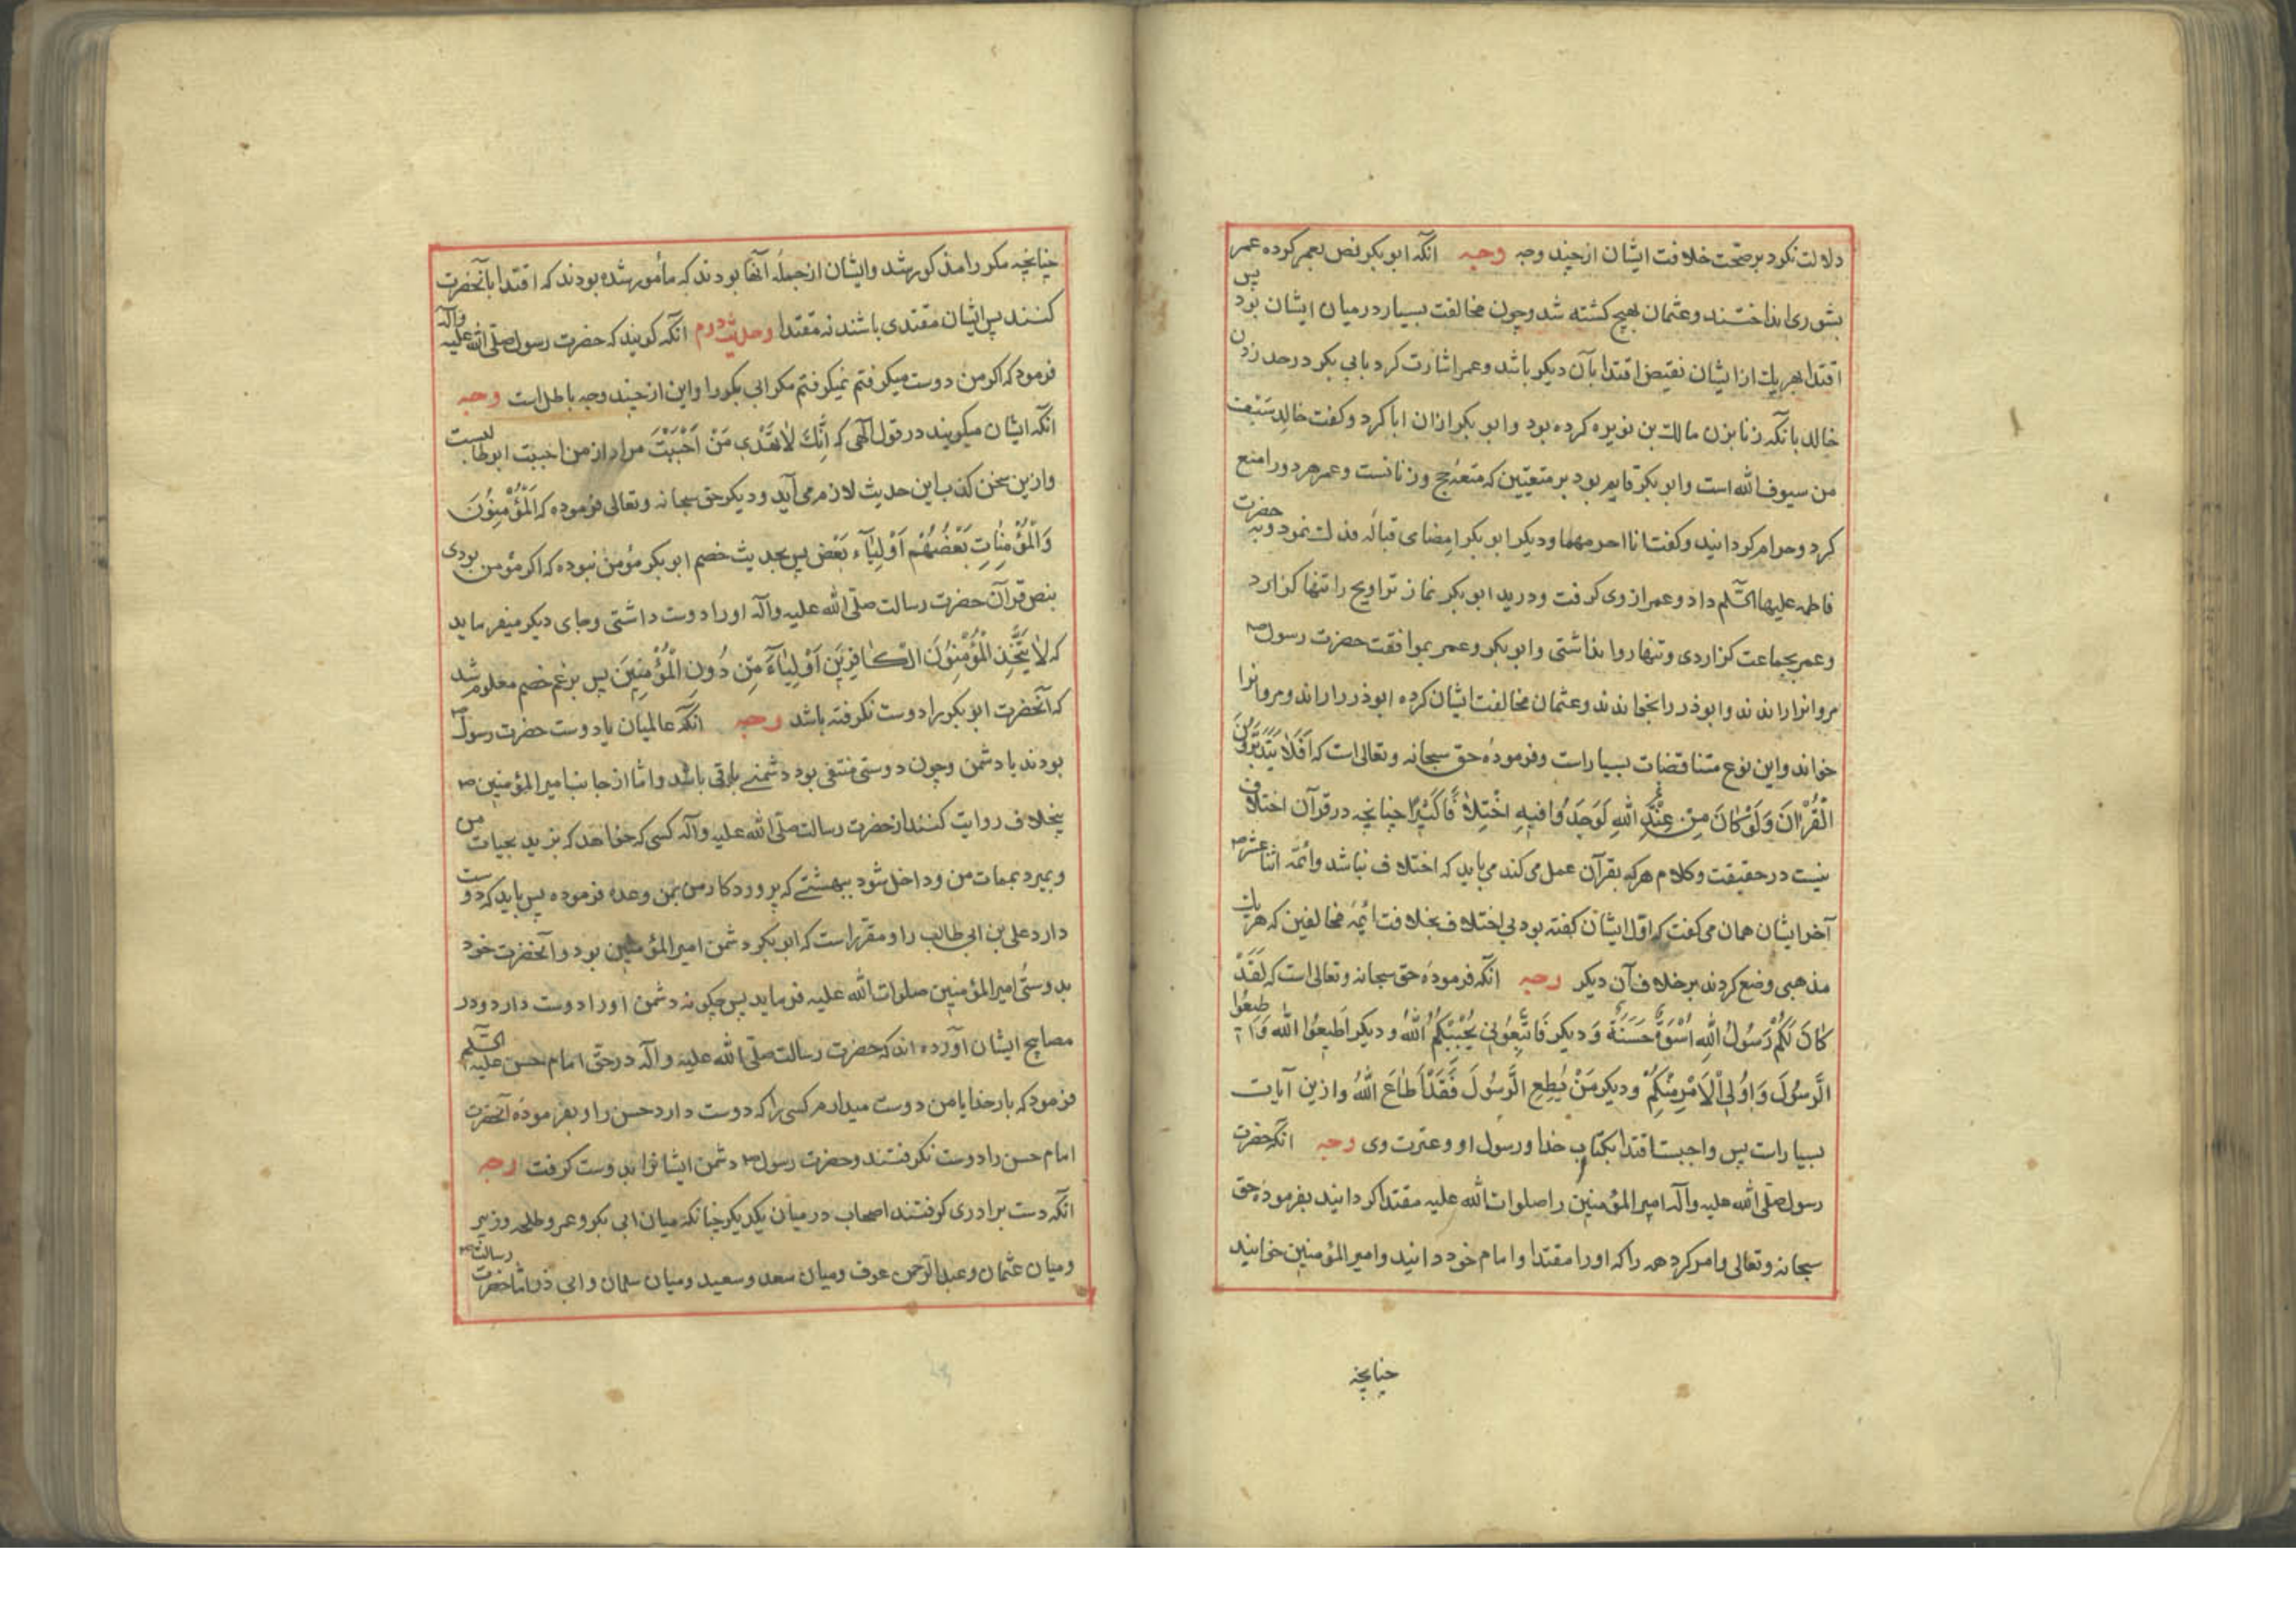 دلالت نکرد بر صحّت خلافت ایشان از چند وجه وجه انکه ابو بکر نص بعمر کرده عمر
بشوری انداختند و عثمان بهیچ کشته شد و چون مخالفت بسیار در میان ایشان بود پس
اقتدا بهر یک از ایشان نقیض اقتدا بآن دیکر باشد و عمر اشارت کرد بابی بکر در حد زدن
خالد بانکه زنا بزن مالک بن نویره کرده بود و ابو بکر ازان ابا کرد و کفت خالد سَیْفٌ
من سیوف الله است و ابو بکر قایم بود بر متعتین که متعهٔ حج و زنانست و عمر هر دو را منع
کرد و حرام کردانید و کفت انا احرمهما و دیکر ابو بکر امضای قبالهٔ فدک نمود و به حضرت
فاطمه علیها السّلم داد و عمر از وی کرفت و درید ابو بکر نماز تراویح را تنها کزارد
و عمر بجماعت کزاردی و تنها روا نداشتی و ابو بکر و عمر بموافقت حضرت رسول ص
مروانرا راندند و ابوذر را بخواندند و عثمان مخالفت ایشان کرده ابوذر را راند و مروانرا
خواند و این نوع متناقضات بسیار است و فرمودهٔ حق سبحانه و تعالی است که اَفَلَا یَتَدَبَّرُونَ
الْقُرْاٰنَ وَلَوْ کٰانَ مِنْ عِنْدِ غیر اللهِ لَوَجَدُوا فیهِ اخْتِلَافًا کَثیرًا چنانچه در قرآن اختلاف
نیست در حقیقت و کلام هر که بقرآن عمل می کند می باید که اختلاف نباشد وائمّه اثنا عشر ص
آخر ایشان همان می کفت که اوّل ایشان کفته بود بی اختلاف بخلافت ائمهٔ مخالفین که هر یک
مذهبی وضع کردند بر خلاف آن دیکر وجه انکه فرمودهٔ حق سبحانه و تعالی است که لَقَدْ
کٰانَ لَکُمْ رَسُولُ اللهِ اُسْوَةٌ حَسَنَةٌ وَ دیکر فَاتَّبِعُونی یُحْبِبْکُمُ اللهُ و دیکر اَطیعُوا الله وَاَطیعُوا
الرَّسُولَ وَاُولِی الْاَمْرِ مِنْکُمْ و دیکر مَنْ یُطِعِ الرَّسُولَ فَقَدْ اَطٰاعَ اللهُ وازین آیات
بسیار است پس واجبست اقتدا بکتاب خدا و رسول او و عترت وی وجه انکه حضرت
رسول صلّی الله علیه وآله امیر المؤمنین را صلوات الله علیه مقتدا کردانید بفرمودهٔ حق
سبحانه و تعالی و امر کرد همه را که او را مقتدا و امام خود دانید و امیر المؤمنین خوانید
چنانچه
چنانچه مکرر را مذکور شد و ایشان از جملهٔ آنها بودند که مأمور شده بودند که اقتدا بآنحضرت
کنند پس ایشان مقتدی باشند نه مقتدا وحدیث دوم انکه کویند که حضرت رسول صلّی الله علیه وآله
فرمود که اکر من دوست میکرفتم نمیکرفتم مکر ابی بکر را و این از چند وجه باطل است وجه
انکه ایشان میکویند در قول الٓهی که اِنَّكَ لَا تَهْدی مَنْ اَحْبَبْتَ مراد از من احببت ابوطالبست
و ازین سخن کذب این حدیث لازم می آید و دیکر حق سبحانه و تعالی فرموده که اَلْمُؤْمِنُونَ
وَالْمُؤْمِنٰاتِ بَعْضُهُمْ اَوْلِیٰآءِ بَعْض پس بحدیث خصم ابو بکر مؤمن نبوده که اکر مؤمن بودی
بنص قرآن حضرت رسالت صلّی الله علیه وآله او را دوست داشتی و جای دیکر میفرماید
که لَا یَتَّخِذِ الْمُؤْمِنُونَ الْکٰافِرینَ اَوْلِیٰآءَ مِنْ دُونِ الْمُؤْمِنینَ پس بزعم خصم معلوم شد
که آنحضرت ابو بکر را دوست نکرفته باشد وجه انکه عالمیان یا دوست حضرت رسول ص
بودند یا دشمن و چون دوستی منتفی بود دشمنی باقی باشد و اما از جانب امیر المؤمنین ص
بخلاف روایت کنند از حضرت رسالت صلّی الله علیه وآله کسی که خواهد که بزید بحیات من
و بمیرد بممات من و داخل شود ببهشتی که پروردکار من بمن وعده فرموده پس باید که دوست
دارد علی بن ابی طالب را و مقرر است که ابو بکر دشمن امیر المؤمنین بود و آنحضرت خود
بدوستیِ امیر المؤمنین صلوات الله علیه فرماید پس چکونه دشمن او را دوست دارد و در
مصابیح ایشان آورده اند که حضرت رسالت صلّی الله علیه و آله در حقّ امام حسن علیه السّلم
فرمود که بار خدایا من دوست میدارم کسی را که دوست دارد حسن را و بفرمودهٔ آنحضرت
امام حسن را دوست نکرفتند و حضرت رسول ص دشمن ایشانرا بدوست کرفت وجه
انکه دست برادری کرفتند اصحاب در میان یکدیکر چنانکه میان ابی بکر و عمر و طلحه و زبیر
و میان عثمان و عبد الرّحمن عوف و میان سعد و سعید و میان سلمان و ابی ذر اما حضرت رسالت ص